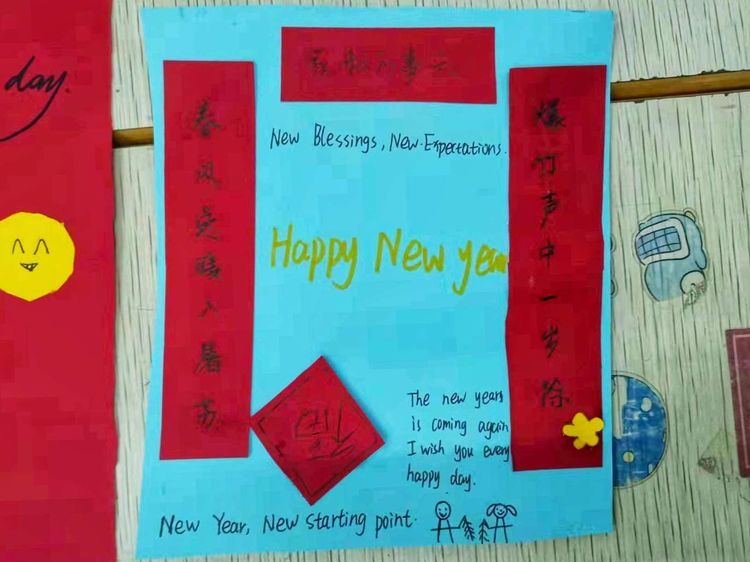 day.
New Blessings, New Expectations.
爆竹声中一岁除
春风送暖入屠苏
Happy New year
The new years
is coming again
I wish you every
happy day.
New Year, New starting point.